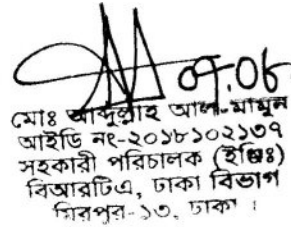 ০৭.০৮
মোঃ আব্দুল্লাহ আল- মামুন
আইডি নং-২০১৮১০২১৩৭
সহকারী পরিচালক (ইঞ্জিঃ)
বিআরটিএ, ঢাকা বিভাগ
মিরপুর-১৩, ঢাকা ।